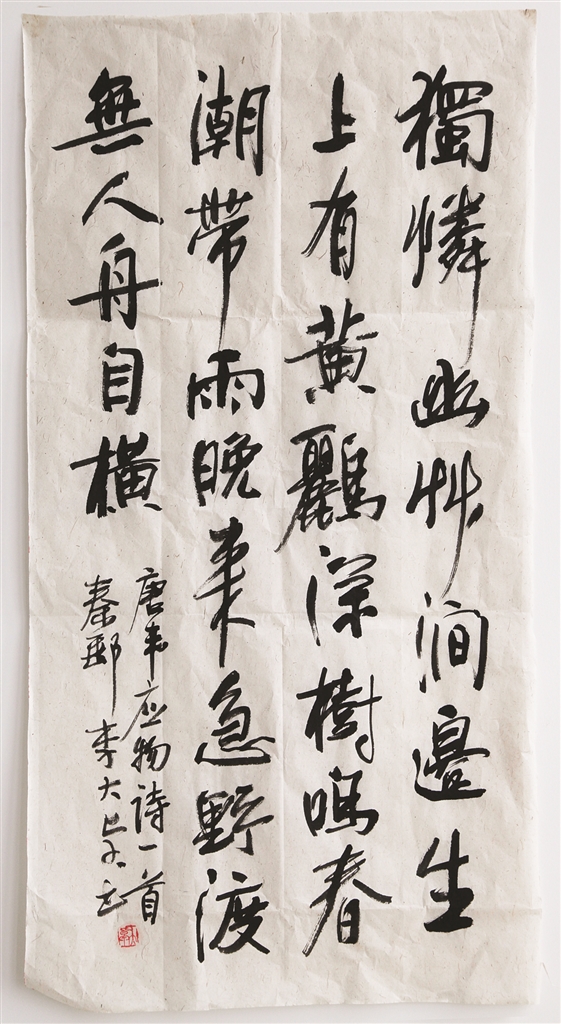 獨憐幽艸澗邊生
上有黃鸝深樹鳴春
潮帶雨晚來急野渡
無人舟自橫
唐韦应物诗一首
秦邮 李大